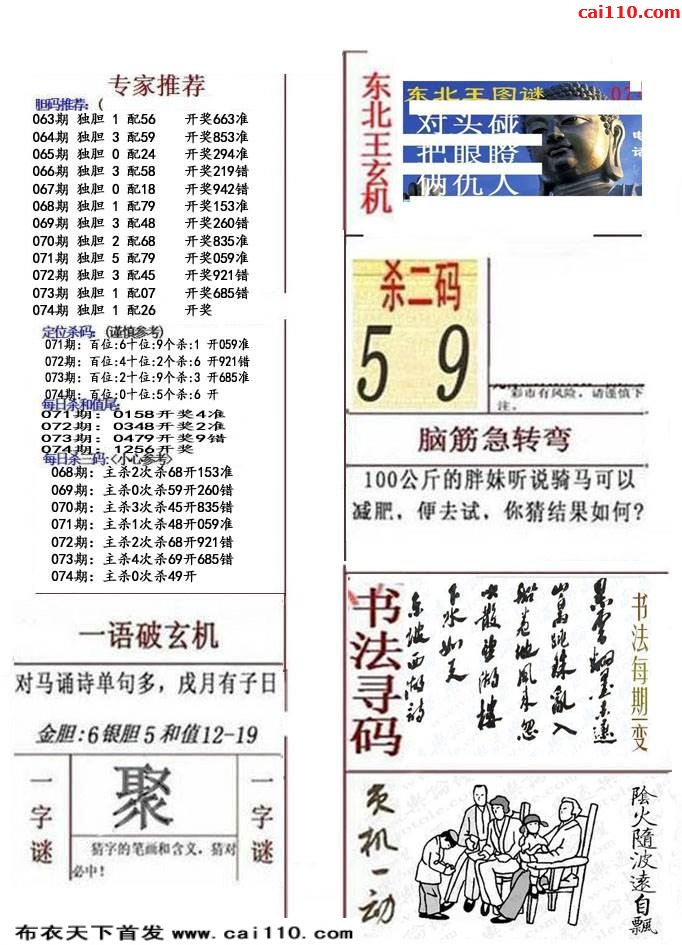 cai110.com
专家推荐
胆码推荐：(
063期 独胆 1 配56 开奖663准
064期 独胆 3 配59 开奖853准
065期 独胆 0 配24 开奖294准
066期 独胆 3 配58 开奖219错
067期 独胆 0 配18 开奖942错
068期 独胆 1 配79 开奖153准
069期 独胆 3 配48 开奖260错
070期 独胆 2 配68 开奖835准
071期 独胆 5 配79 开奖059准
072期 独胆 3 配45 开奖921错
073期 独胆 1 配07 开奖685错
074期 独胆 1 配26 开奖
定位杀码：(谨慎参考)
071期：百位:6十位:9个杀:1 开059准
072期：百位:4十位:2个杀:6 开921错
073期：百位:2十位:9个杀:3 开685准
074期：百位:0十位:5个杀:6 开
每日杀和值尾：
071期：0158开奖4准
072期：0348开奖2准
073期：0479开奖9错
074期：1256开奖
每日杀三码：<小心参考>
068期：主杀2次杀68开153准
069期：主杀0次杀59开260错
070期：主杀3次杀45开835错
071期：主杀1次杀48开059准
072期：主杀2次杀68开921错
073期：主杀4次杀69开685错
074期：主杀0次杀49开
一语破玄机
对马诵诗单句多，戌月有子日
金胆:6银胆5和值12-19
一字谜
聚
一字谜
猜字的笔画和含义，猜对
必中！
布衣天下首发 www.cai110.com
东北王玄机
东北王图谜
074
对头碰
把眼瞪
俩仇人
杀二码
5 9
彩市有风险，请谨慎下
注。
脑筋急转弯
100公斤的胖妹听说骑马可以
减肥，便去试，你猜结果如何?
书法寻码
书法每期一变
黑云翻墨未遮
山白雨跳珠乱入
船卷地风来忽
吹散望湖楼
下水如天
灵机一动
陰火隨波遠自飄